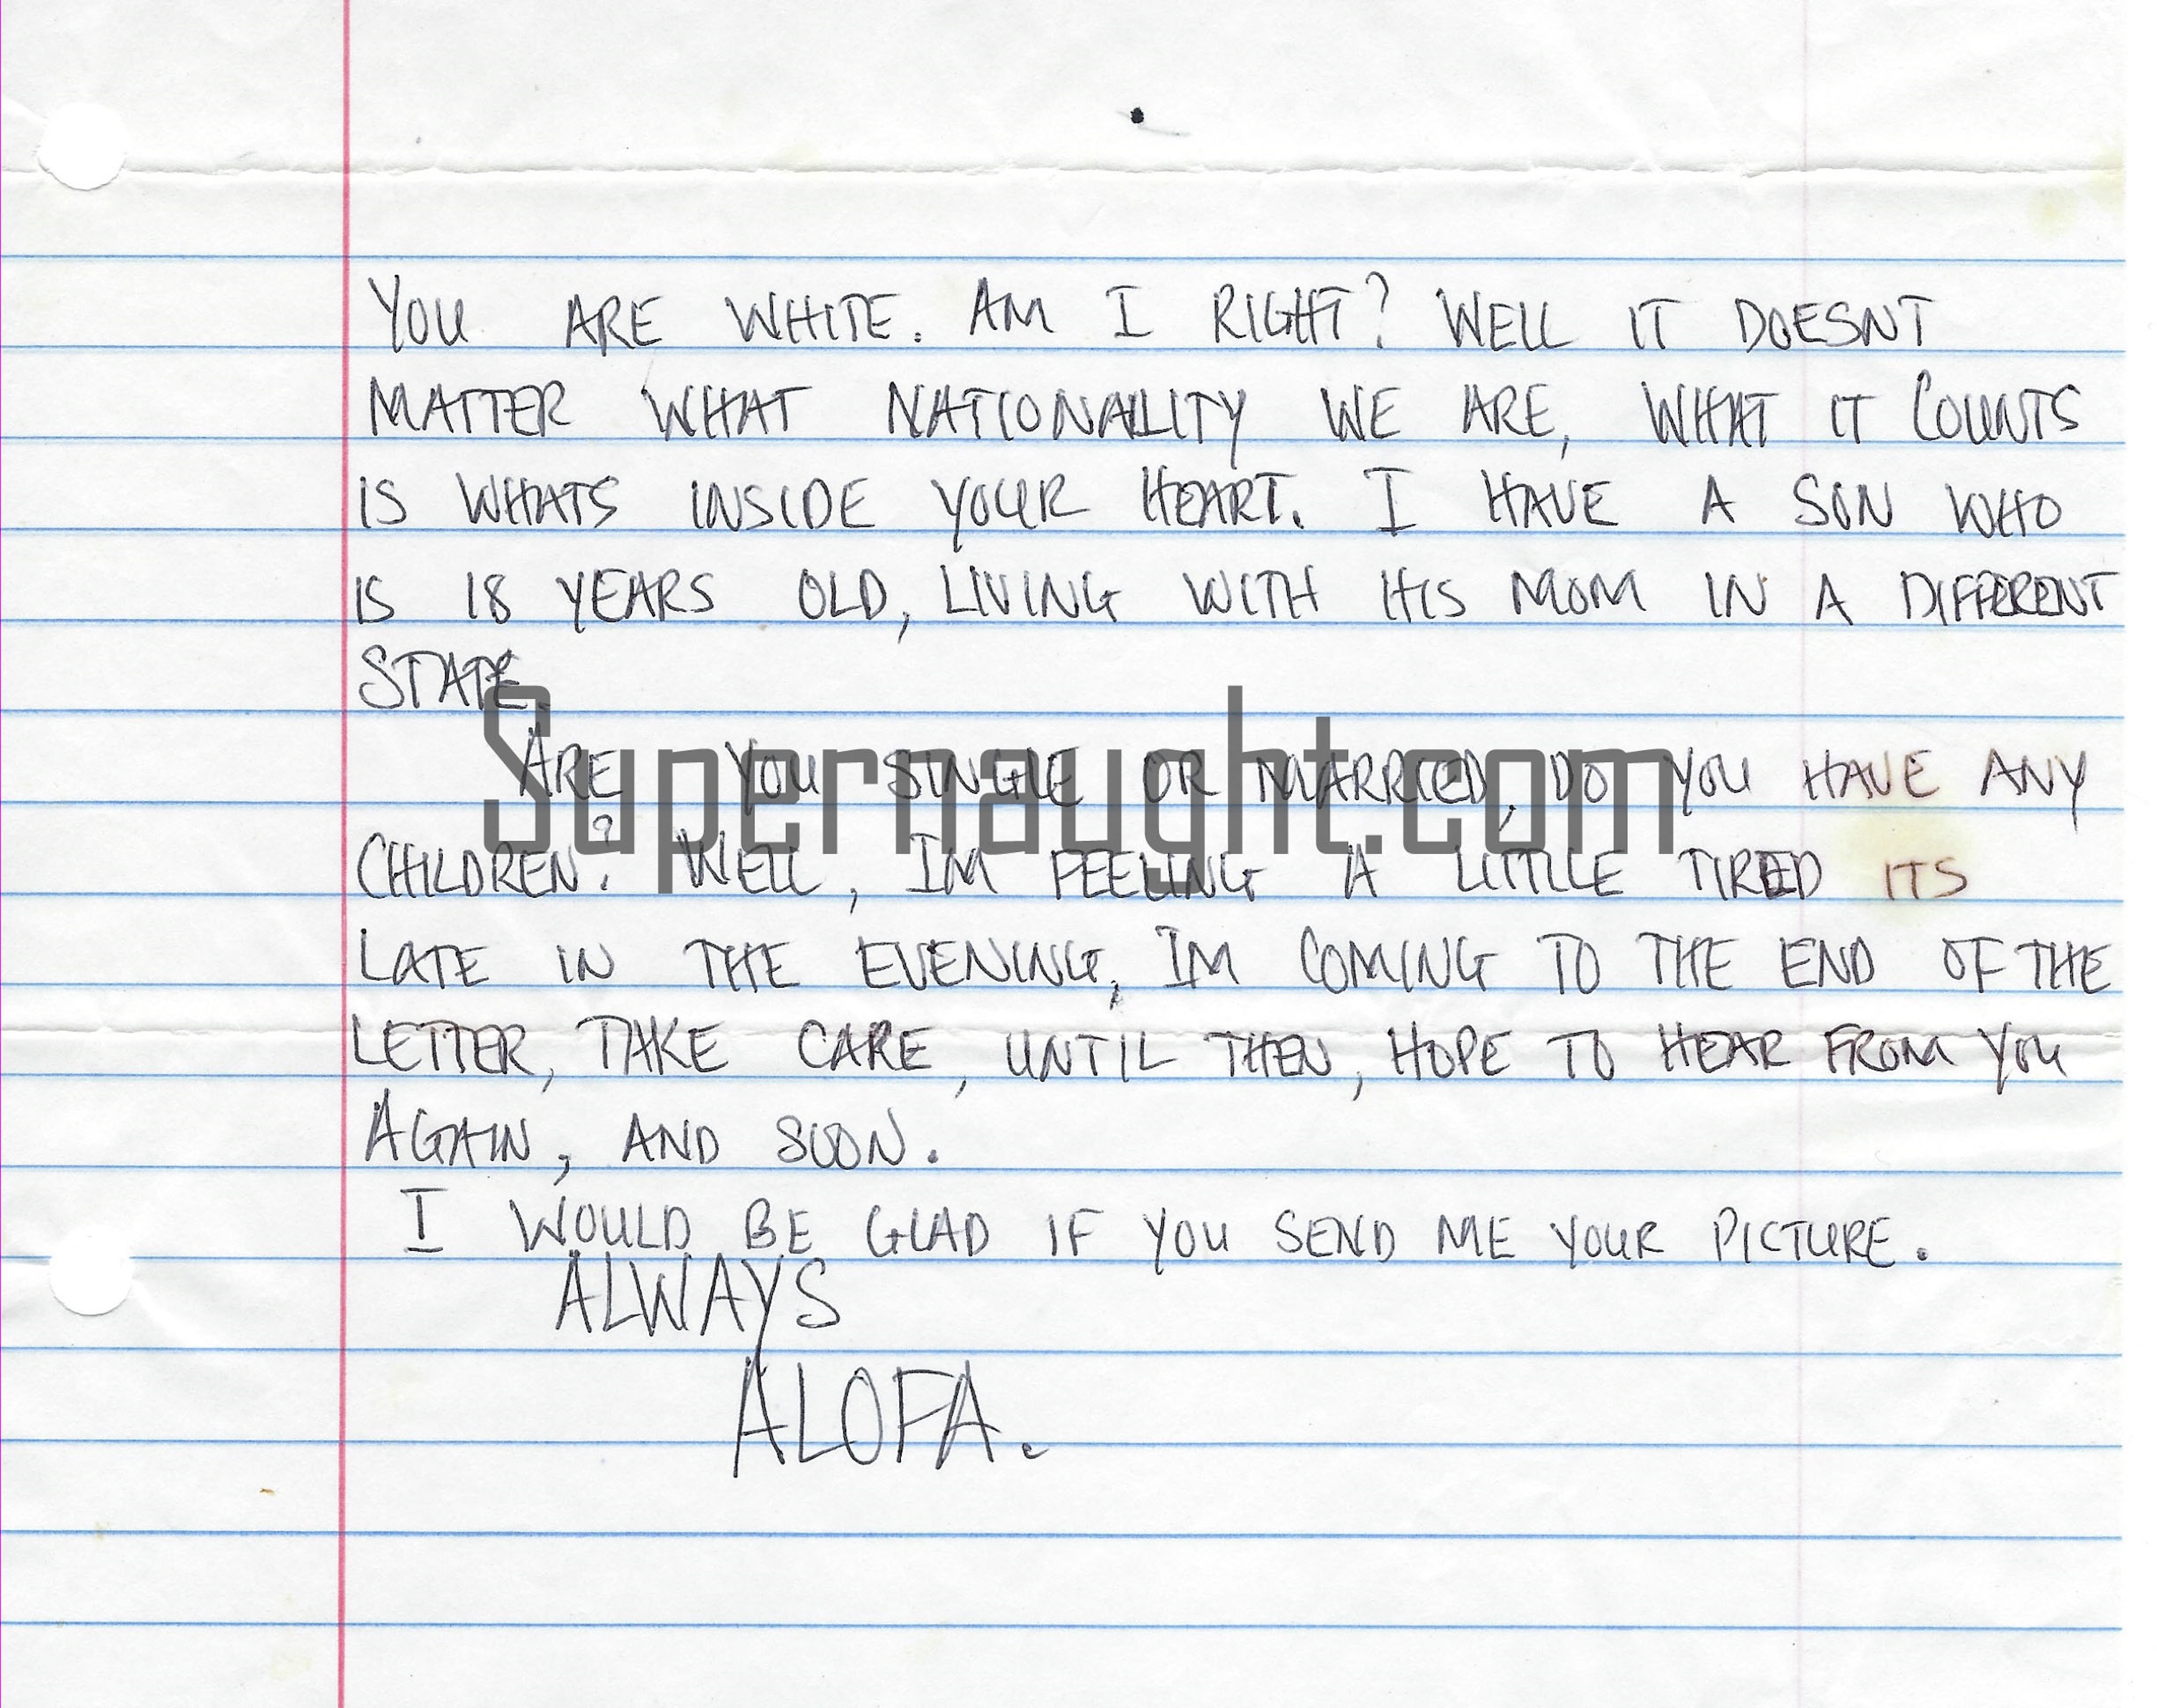 YOU ARE WHITE. AM I RIGHT? WELL IT DOESNT
MATTER WHAT NATIONALITY WE ARE, WHAT IT COUNTS
IS WHATS INSIDE YOUR HEART. I HAVE A SON WHO
IS 18 YEARS OLD, LIVING WITH HIS MOM IN A DIFFERENT
STATE.
Supernaught.com
ARE YOU SINGLE OR MARRIED, DO YOU HAVE ANY
CHILDREN? WELL, IM FEELING A LITTLE TIRED ITS
LATE IN THE EVENING, IM COMING TO THE END OF THE
LETTER, TAKE CARE, UNTIL THEN, HOPE TO HEAR FROM YOU
AGAIN, AND SOON.
I WOULD BE GLAD IF YOU SEND ME YOUR PICTURE.
ALWAYS
ALOFA.